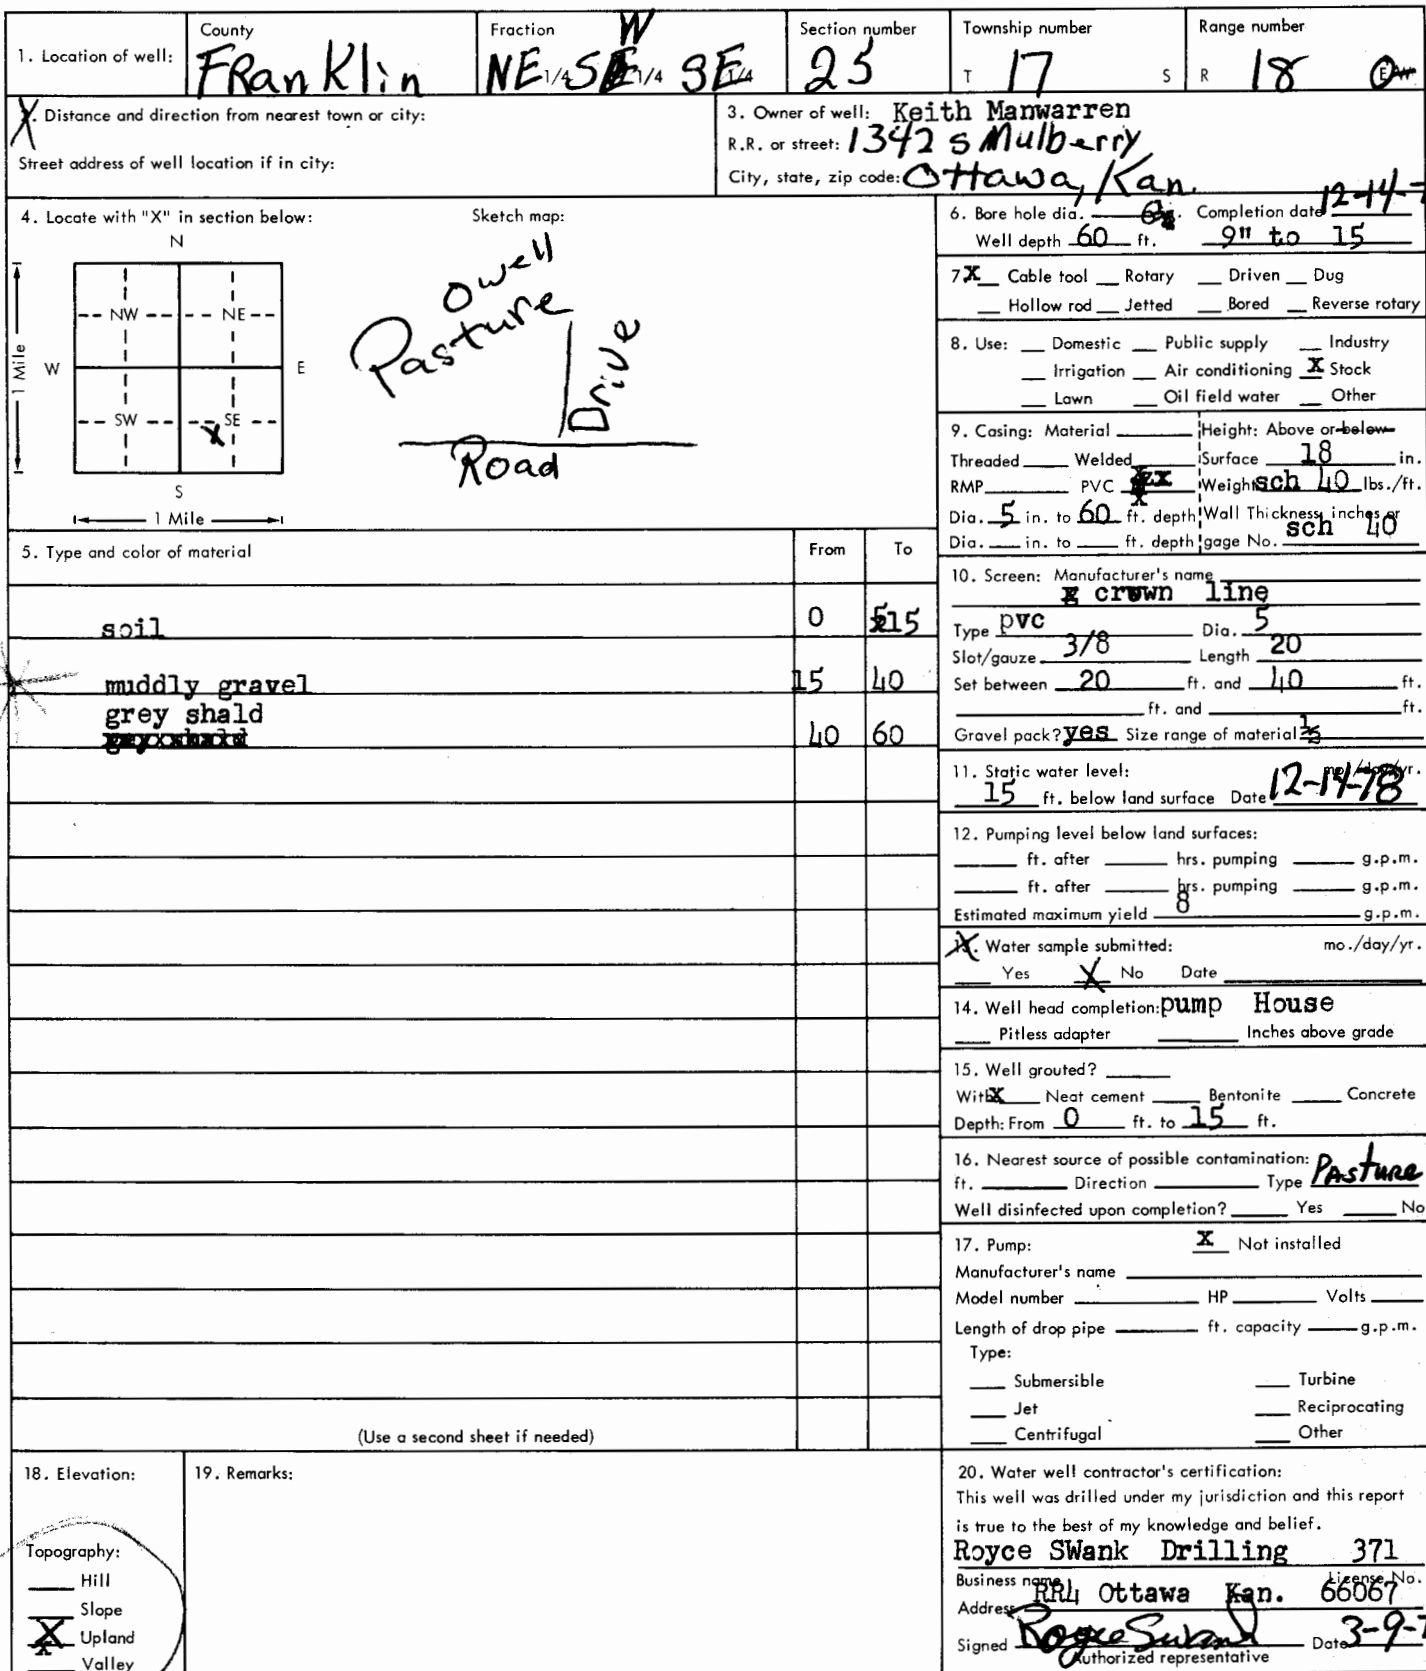 County Fraction Section number Township number Range number
1. Location of well: FRanKlin NE 1/4 SW 1/4 SE 1/4 25 T 17 S R 18 E/W
2. Distance and direction from nearest town or city:
Street address of well location if in city:
3. Owner of well: Keith Manwarren
R.R. or street: 1342 S Mulberry
City, state, zip code: Ottawa, Kan.
4. Locate with "X" in section below:
N
NW NE
W E
SW SE
X
S
1 Mile
1 Mile
Sketch map:
O well
Pasture
Drive
Road
6. Bore hole dia. Completion date 12-14-7
Well depth 60 ft. 9" to 15
7 X Cable tool Rotary Driven Dug
Hollow rod Jetted Bored Reverse rotary
8. Use: Domestic Public supply Industry
Irrigation Air conditioning X Stock
Lawn Oil field water Other
9. Casing: Material Height: Above or below
Threaded Welded Surface 18 in.
RMP PVC x Weight sch 40 lbs./ft.
Dia. 5 in. to 60 ft. depth Wall Thickness inches or
Dia. in. to ft. depth gage No. sch 40
5. Type and color of material From To
soil 0 15
muddly gravel 15 40
grey shald
40 60
(Use a second sheet if needed)
10. Screen: Manufacturer's name
crown line
Type pvc Dia. 5
Slot/gauze 3/8 Length 20
Set between 20 ft. and 40 ft.
ft. and ft.
Gravel pack? yes Size range of material
11. Static water level: mo./day/yr.
15 ft. below land surface Date 12-14-78
12. Pumping level below land surfaces:
ft. after hrs. pumping g.p.m.
ft. after hrs. pumping g.p.m.
Estimated maximum yield 8 g.p.m.
13. Water sample submitted: mo./day/yr.
Yes X No Date
14. Well head completion: pump House
Pitless adapter Inches above grade
15. Well grouted?
With x Neat cement Bentonite Concrete
Depth: From 0 ft. to 15 ft.
16. Nearest source of possible contamination:
ft. Direction Type PAsture
Well disinfected upon completion? Yes No
17. Pump: X Not installed
Manufacturer's name
Model number HP Volts
Length of drop pipe ft. capacity g.p.m.
Type:
Submersible Turbine
Jet Reciprocating
Centrifugal Other
18. Elevation:
Topography:
Hill
Slope
X Upland
Valley
19. Remarks:
20. Water well contractor's certification:
This well was drilled under my jurisdiction and this report
is true to the best of my knowledge and belief.
Royce SWank Drilling 371
Business name License No.
Address RR4 Ottawa Kan. 66067
Signed Royce Swank Date 3-9-7
Authorized representative